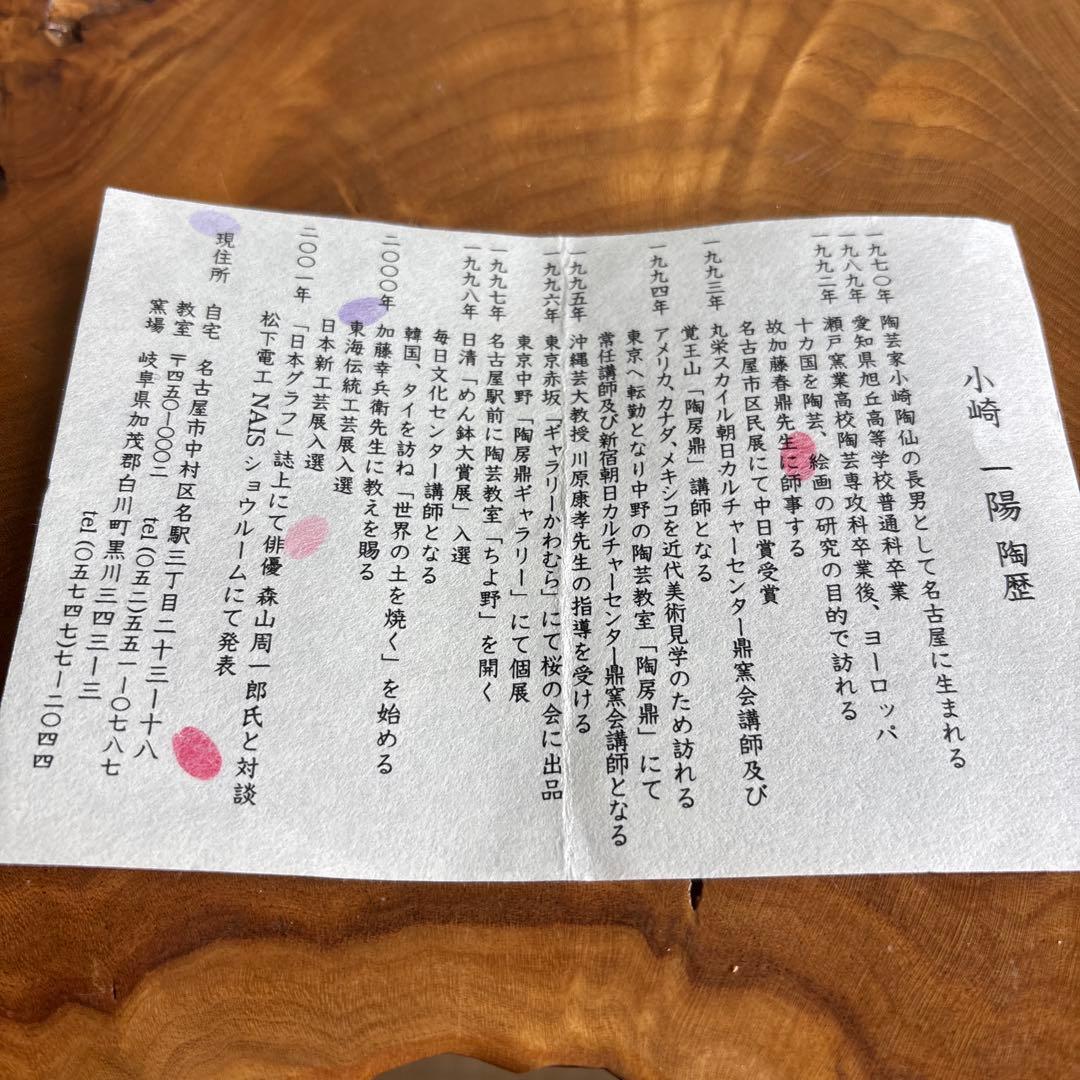 小崎 一陽 陶歴
一九七〇年 陶芸家小崎陶仙の長男として名古屋に生まれる
一九八九年 愛知県旭丘高等学校普通科卒業
一九九二年 瀬戸窯業高校陶芸専攻科卒業後、ヨーロッパ
十カ国を陶芸、絵画の研究の目的で訪れる
故加藤春鼎先生に師事する
名古屋市区民展にて中日賞受賞
一九九三年 丸栄スカイル朝日カルチャーセンター鼎窯会講師及び
覚王山「陶房鼎」講師となる
一九九四年 アメリカ、カナダ、メキシコを近代美術見学のため訪れる
東京へ転勤となり中野の陶芸教室「陶房鼎」にて
常任講師及び新宿朝日カルチャーセンター鼎窯会講師となる
一九九五年 沖縄芸大教授 川原康孝先生の指導を受ける
一九九六年 東京赤坂「ギャラリーかわむら」にて桜の会に出品
東京中野「陶房鼎ギャラリー」にて個展
一九九七年 名古屋駅前に陶芸教室「ちよ野」を開く
一九九八年 日清「めん鉢大賞展」入選
毎日文化センター講師となる
韓国、タイを訪ね「世界の土を焼く」を始める
二〇〇〇年 加藤幸兵衛先生に教えを賜る
東海伝統工芸展入選
日本新工芸展入選
二〇〇一年 「日本グラフ」誌上にて俳優 森山周一郎氏と対談
松下電工 NAIS ショウルームにて発表
現住所 自宅 名古屋市中村区名駅三丁目二十三ー十八
教室 〒四五〇ー〇〇〇二 tel(〇五二)五五一ー〇七八七
窯場 岐阜県加茂郡白川町黒川三四三ー三
tel(〇五七四七)七ー二〇四四